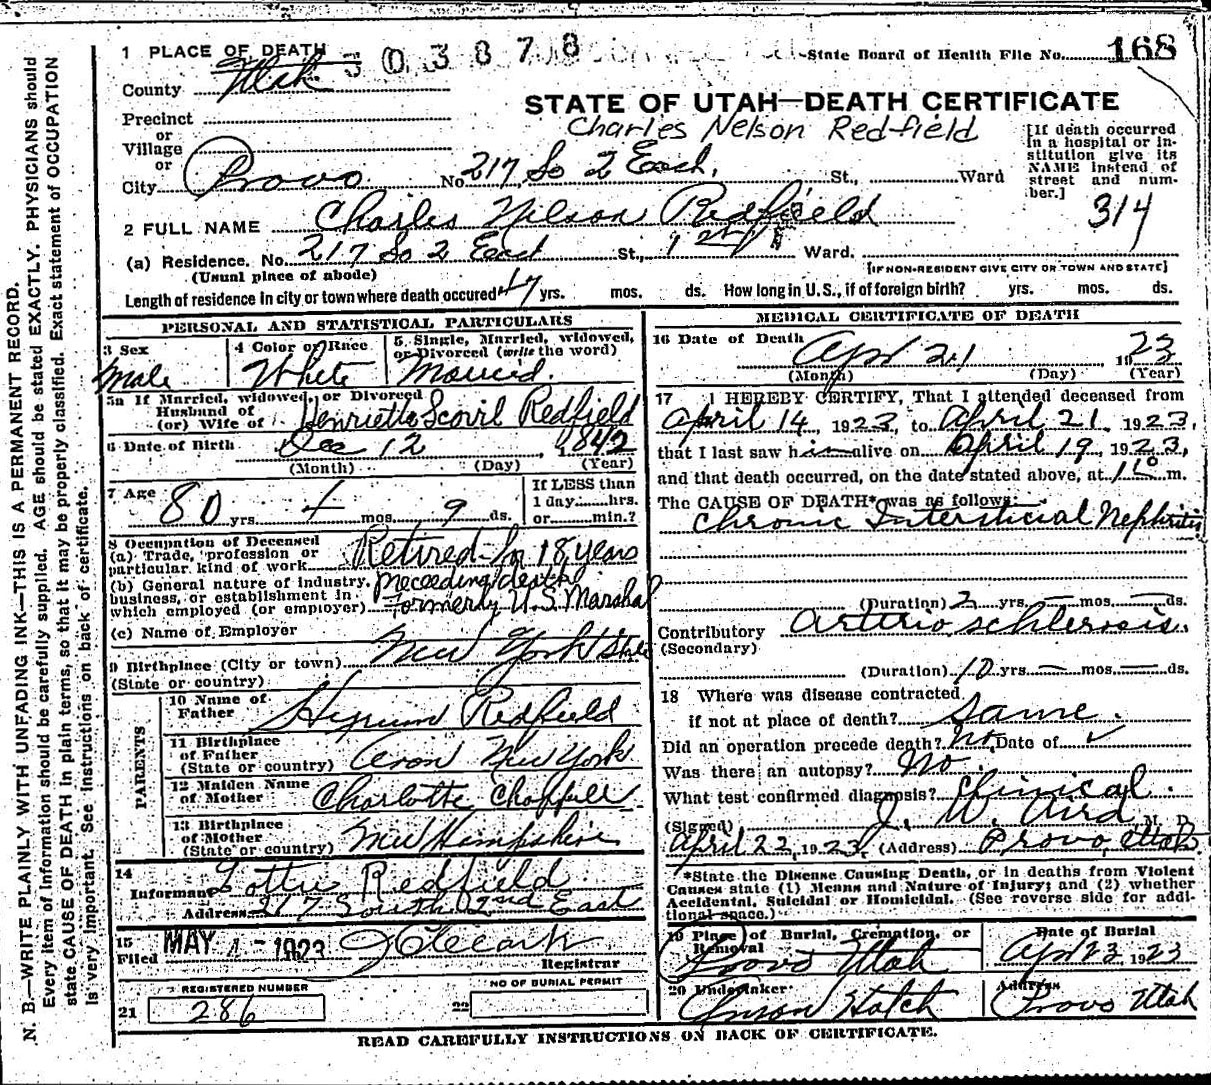 1 PLACE OF DEATH 303878 State Board of Health File No. 168
County Utah
STATE OF UTAH—DEATH CERTIFICATE
Precinct
Charles Nelson Redfield
or
Village
or
City Provo No. 217 So 2 East, St., Ward
[If death occurred
in a hospital or in-
stitution give its
NAME instead of
street and num-
ber.]
314
2 FULL NAME Charles Nelson Redfield
(a) Residence. No. 217 So 2 East St., Ward.
(Usual place of abode) [IF NON-RESIDENT GIVE CITY OR TOWN AND STATE]
Length of residence in city or town where death occured 47 yrs. mos. ds. How long in U.S., if of foreign birth? yrs. mos. ds.
PERSONAL AND STATISTICAL PARTICULARS
3 Sex
Male
4 Color or Race
White
5 Single, Married, widowed,
or Divorced (write the word)
Married.
5a If Married, widowed, or Divorced
Husband of
(or) Wife of Henrietta Scovil Redfield
6 Date of Birth Dec 12, 1842
(Month) (Day) (Year)
7 Age
80 yrs. 4 mos. 9 ds.
If LESS than
1 day hrs.
or min.?
8 Occupation of Deceased
(a) Trade, profession or
particular kind of work Retired for 18 years
(b) General nature of industry,
business, or establishment in
which employed (or employer)
preceeding death
formerly U.S. Marshal
(c) Name of Employer
9 Birthplace (City or town) New York State
(State or country)
PARENTS
10 Name of
Father Hyrum Redfield
11 Birthplace
of Father
(State or country) Avon New York
12 Maiden Name
of Mother Charlotte Chappell
13 Birthplace
of Mother
(State or country) New Hampshire
14
Informant Lottie Redfield
Address 217 South 2nd East
15
Filed MAY 4 - 1923
Registrar
REGISTERED NUMBER
21 286
NO OF BURIAL PERMIT
22
MEDICAL CERTIFICATE OF DEATH
16 Date of Death
Apr 21 1923
(Month) (Day) (Year)
17 I HEREBY CERTIFY, That I attended deceased from
April 14, 1923, to April 21, 1923,
that I last saw him alive on April 19, 1923,
and that death occurred, on the date stated above, at m.
The CAUSE OF DEATH* was as follows:
Chronic Intersticial Nephritis
(Duration) 2 yrs. — mos. — ds.
Contributory Arterio schlerosis.
(Secondary)
(Duration) 10 yrs. — mos. — ds.
18 Where was disease contracted
if not at place of death? Same.
Did an operation precede death? No. Date of ✓
Was there an autopsy? No.
What test confirmed diagnosis? Clinical.
(Signed) J. W. Aird, M. D.
April 22, 1923, (Address) Provo, Utah
*State the Disease Causing Death, or in deaths from Violent
Causes state (1) Means and Nature of Injury; and (2) whether
Accidental, Suicidal or Homicidal. (See reverse side for addi-
tional space.)
19 Place of Burial, Cremation, or
Removal
Provo Utah
Date of Burial
Apr 23, 1923
20 Undertaker
Hatch
Address
Provo Utah
READ CAREFULLY INSTRUCTIONS ON BACK OF CERTIFICATE.
N. B.—WRITE PLAINLY WITH UNFADING INK—THIS IS A PERMANENT RECORD.
Every item of information should be carefully supplied. AGE should be stated EXACTLY. PHYSICIANS should
state CAUSE OF DEATH in plain terms, so that it may be properly classified. Exact statement of OCCUPATION
is very important. See instructions on back of certificate.